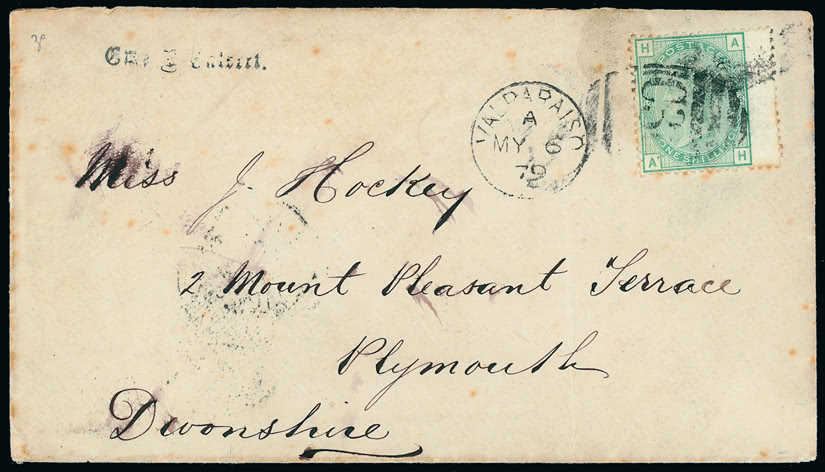 VALPARAISO
A
MY 6
79
H A
POSTAGE
ONE SHILLING
A H
Miss J. Hockey
2 Mount Pleasant Terrace
Plymouth
Devonshire